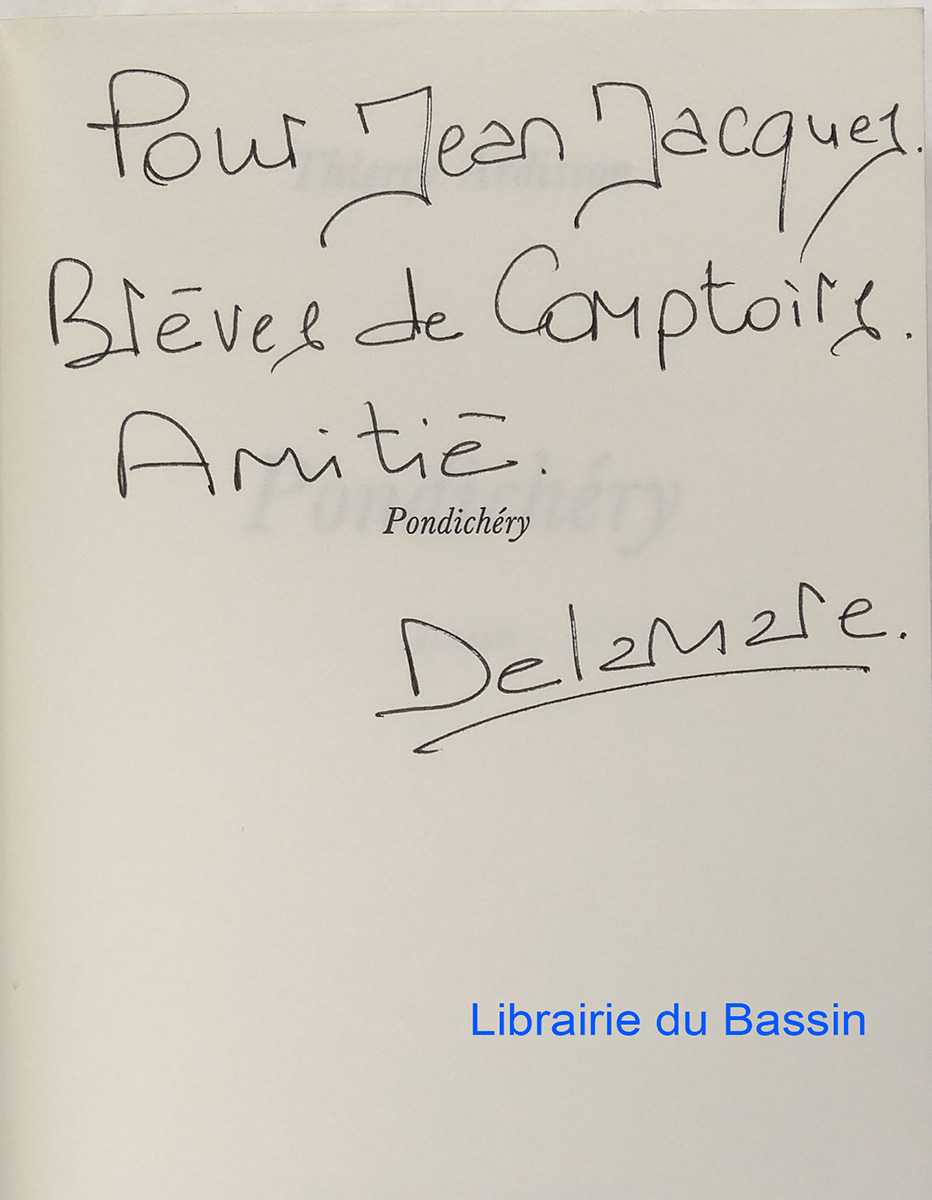 Pour Jean Jacques.
Brèves de Comptoirs.
Amitié.
Pondichéry
Delamare.
Librairie du Bassin